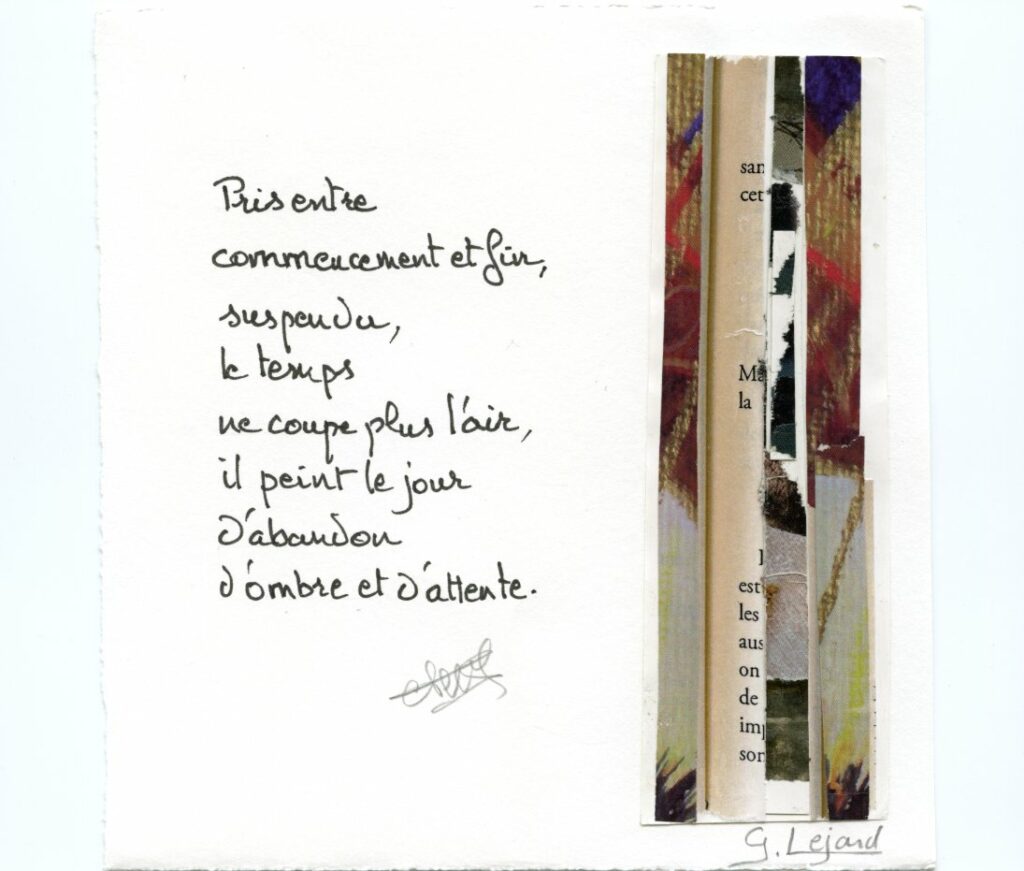 Pris entre
commencement et fin,
suspendu,
le temps
ne coupe plus l'air,
il peint le jour
d'abandon
d'ombre et d'attente.
san
cet
Ma
la
est
les
aus
on
de
imp
son
G. Lejard